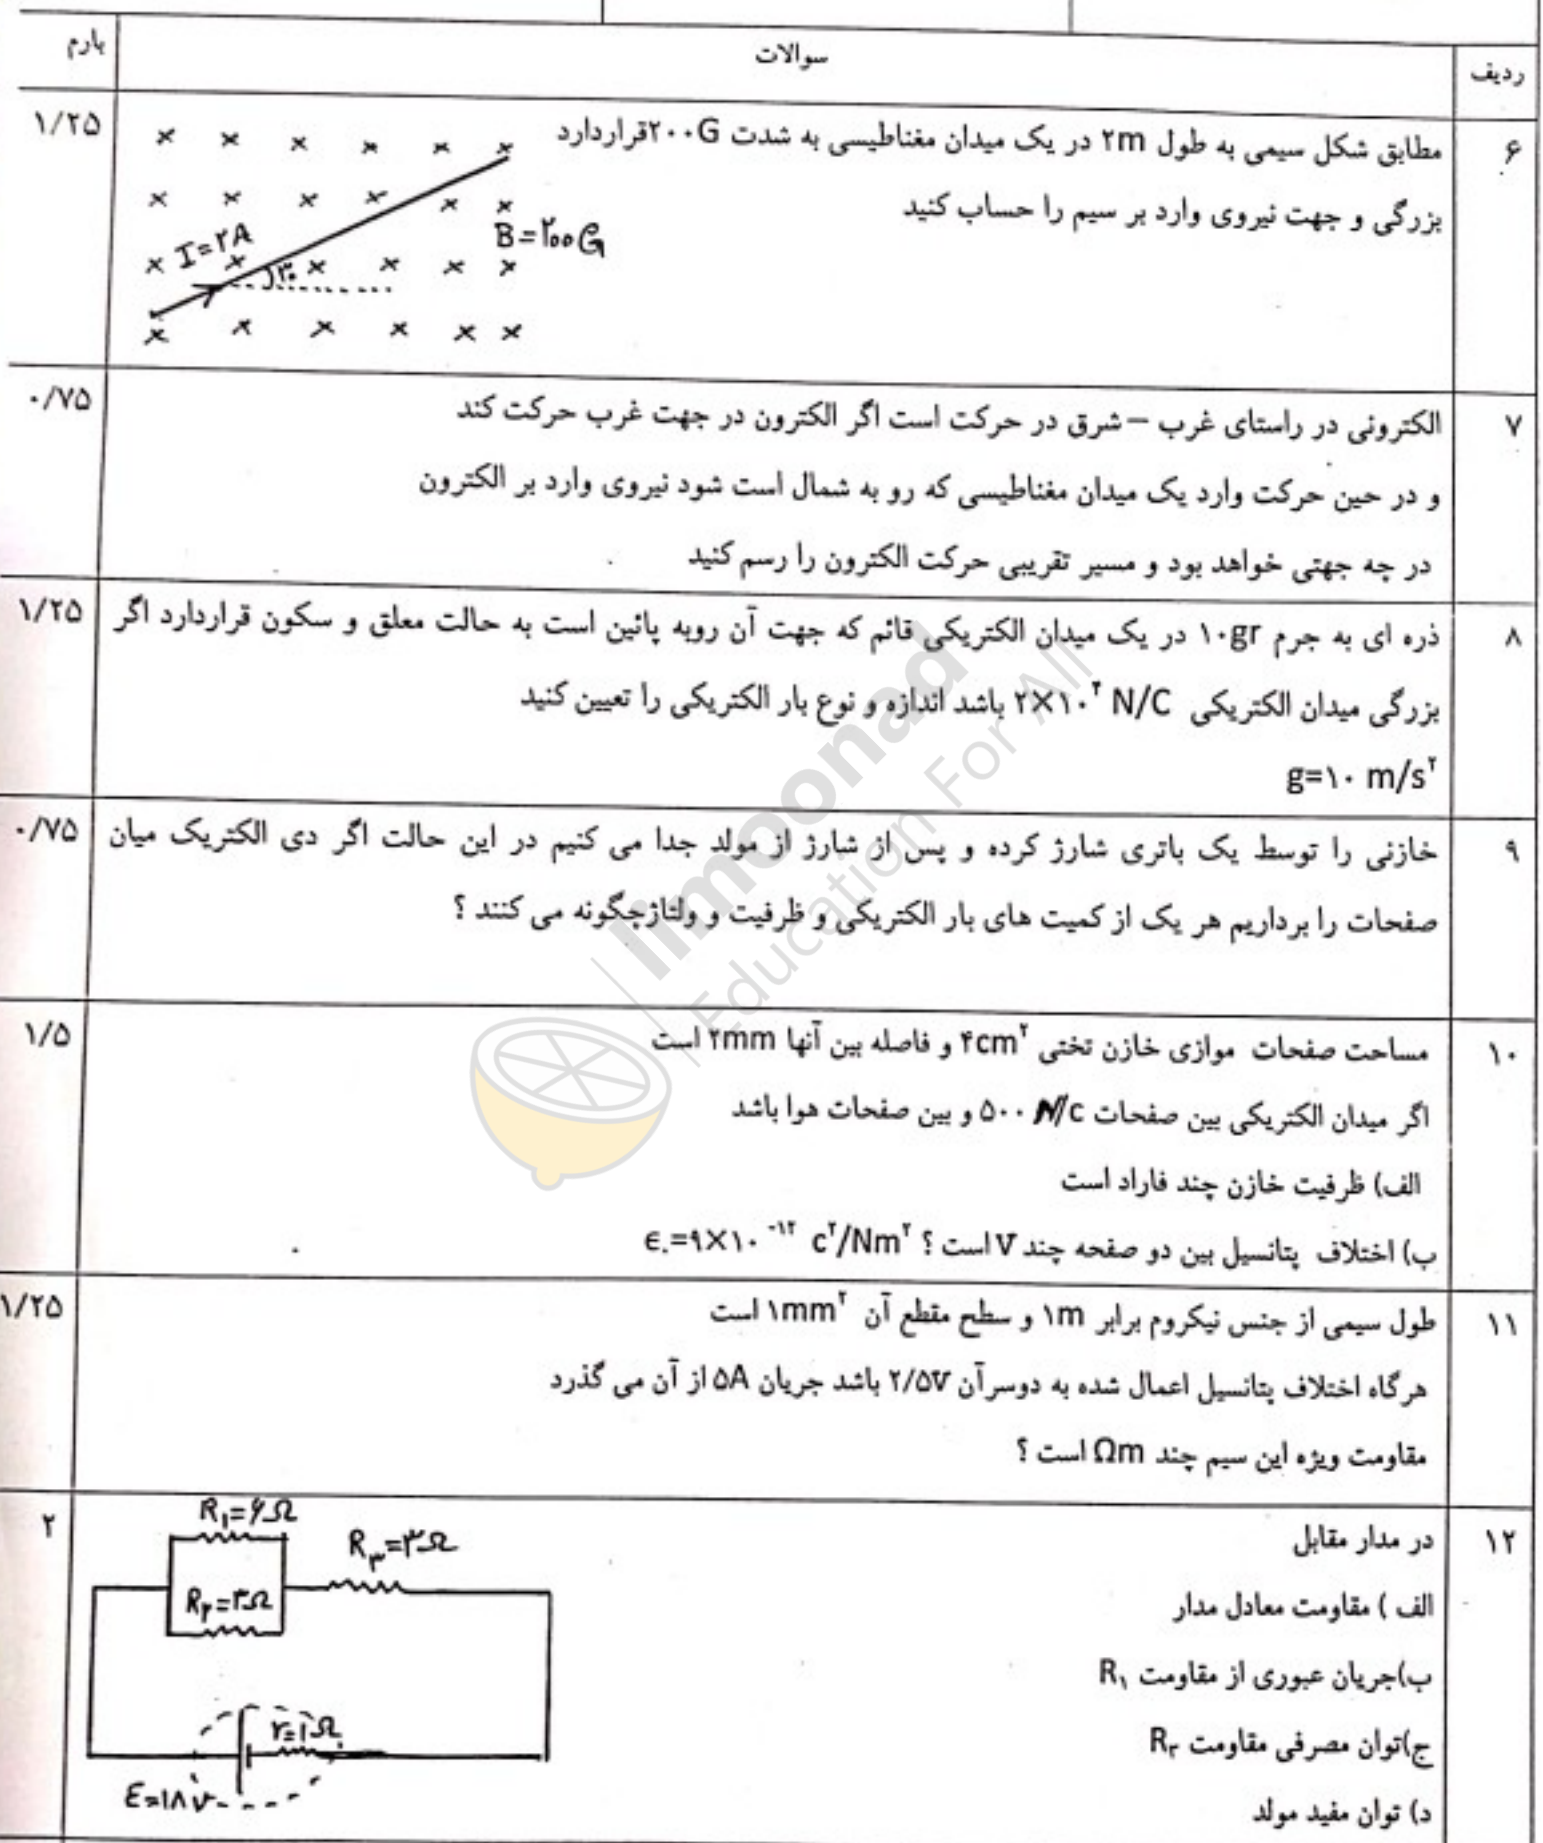 ردیف
سوالات
بارم
۶
مطابق شکل سیمی به طول ۲m در یک میدان مغناطیسی به شدت ۲۰۰G قراردارد
بزرگی و جهت نیروی وارد بر سیم را حساب کنید
۱/۲۵
I=۲A
۳۰
B=۲۰۰G
۷
الکترونی در راستای غرب – شرق در حرکت است اگر الکترون در جهت غرب حرکت کند
و در حین حرکت وارد یک میدان مغناطیسی که رو به شمال است شود نیروی وارد بر الکترون
در چه جهتی خواهد بود و مسیر تقریبی حرکت الکترون را رسم کنید
۰/۷۵
۸
ذره ای به جرم ۱۰gr در یک میدان الکتریکی قائم که جهت آن روبه پائین است به حالت معلق و سکون قراردارد اگر
بزرگی میدان الکتریکی ۲×۱۰⁴ N/C باشد اندازه و نوع بار الکتریکی را تعیین کنید
g=۱۰ m/s²
۱/۲۵
۹
خازنی را توسط یک باتری شارژ کرده و پس از شارژ از مولد جدا می کنیم در این حالت اگر دی الکتریک میان
صفحات را برداریم هر یک از کمیت های بار الکتریکی و ظرفیت و ولتاژچگونه می کنند ؟
۰/۷۵
۱۰
مساحت صفحات موازی خازن تختی ۴cm² و فاصله بین آنها ۲mm است
اگر میدان الکتریکی بین صفحات ۵۰۰ N/c و بین صفحات هوا باشد
الف) ظرفیت خازن چند فاراد است
ب) اختلاف پتانسیل بین دو صفحه چند V است ؟ ε.=۹×۱۰⁻¹² c²/Nm²
۱/۵
۱۱
طول سیمی از جنس نیکروم برابر ۱m و سطح مقطع آن ۱mm² است
هرگاه اختلاف پتانسیل اعمال شده به دوسرآن ۲/۵V باشد جریان ۵A از آن می گذرد
مقاومت ویژه این سیم چند Ωm است ؟
۱/۲۵
۱۲
در مدار مقابل
الف ) مقاومت معادل مدار
ب)جریان عبوری از مقاومت R₁
ج)توان مصرفی مقاومت R₃
د) توان مفید مولد
۲
R₁=۶Ω
R₂=۳Ω
R₃=۳Ω
r=۱Ω
ε=۱۸v
limoonad
Education For All